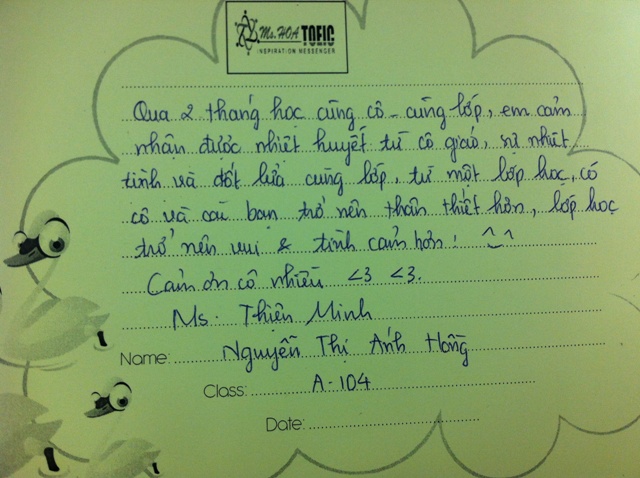 Ms. HOA TOEIC
INSPIRATION MESSENGER
Qua 2 tháng học cùng cô - cùng lớp, em cảm
nhận được nhiệt huyết từ cô giáo, sự nhiệt
tình và đốt lửa cùng lớp, từ một lớp học, có
cô và các bạn trở nên thân thiết hơn, lớp học
trở nên vui & tình cảm hơn! ^_^
Cảm ơn cô nhiều <3 <3.
Ms. Thiên Minh
Name: Nguyễn Thị Ánh Hồng
Class: A-104
Date: